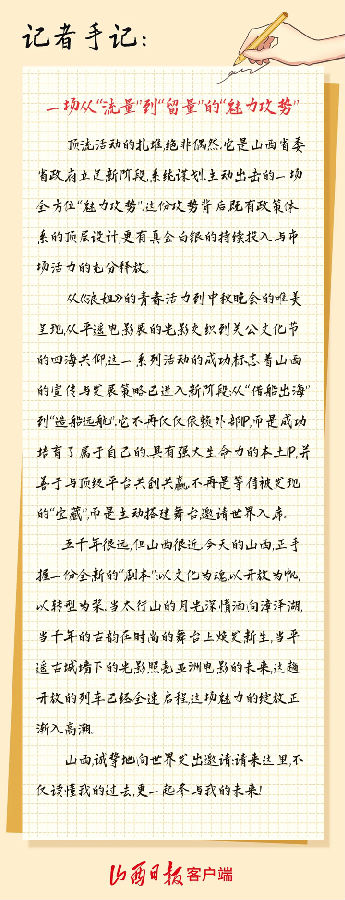 记者手记:
一场从“流量”到“留量”的“魅力攻势”
顶流活动的扎堆,绝非偶然,它是山西省委
省政府立足新阶段,系统谋划,主动出击的一场
全方位“魅力攻势”,这份攻势背后,既有政策体
系的顶层设计,更有真金白银的持续投入与市
场活力的充分释放。
从《浪姐》的青春活力到中秋晚会的唯美
呈现,从平遥电影展的光影交织到关公文化节
的四海共仰,这一系列活动的成功标志着山西
的宣传与发展策略已进入新阶段:从“借船出海”
到“造船远航”,它不再仅仅依赖外部IP,而是成功
培育了属于自己的、具有强大生命力的本土IP,并
善于与顶级平台共创共赢,不再是等待被发现
的“宝藏”,而是主动搭建舞台,邀请世界入席。
五千年很远,但山西很近,今天的山西,正手
握一份全新的“剧本”:以文化为魂,以开放为帆,
以转型为桨。当太行山的月光深情洒向漳泽湖,
当千年的古韵在时尚的舞台上焕发新生,当平
遥古城墙下的光影照亮亚洲电影的未来,这趟
开放的列车已经全速启程,这场魅力的绽放正
渐入高潮。
山西,诚挚地向世界发出邀请:请来这里,不
仅读懂我的过去,更一起参与我的未来!
山西日报客户端